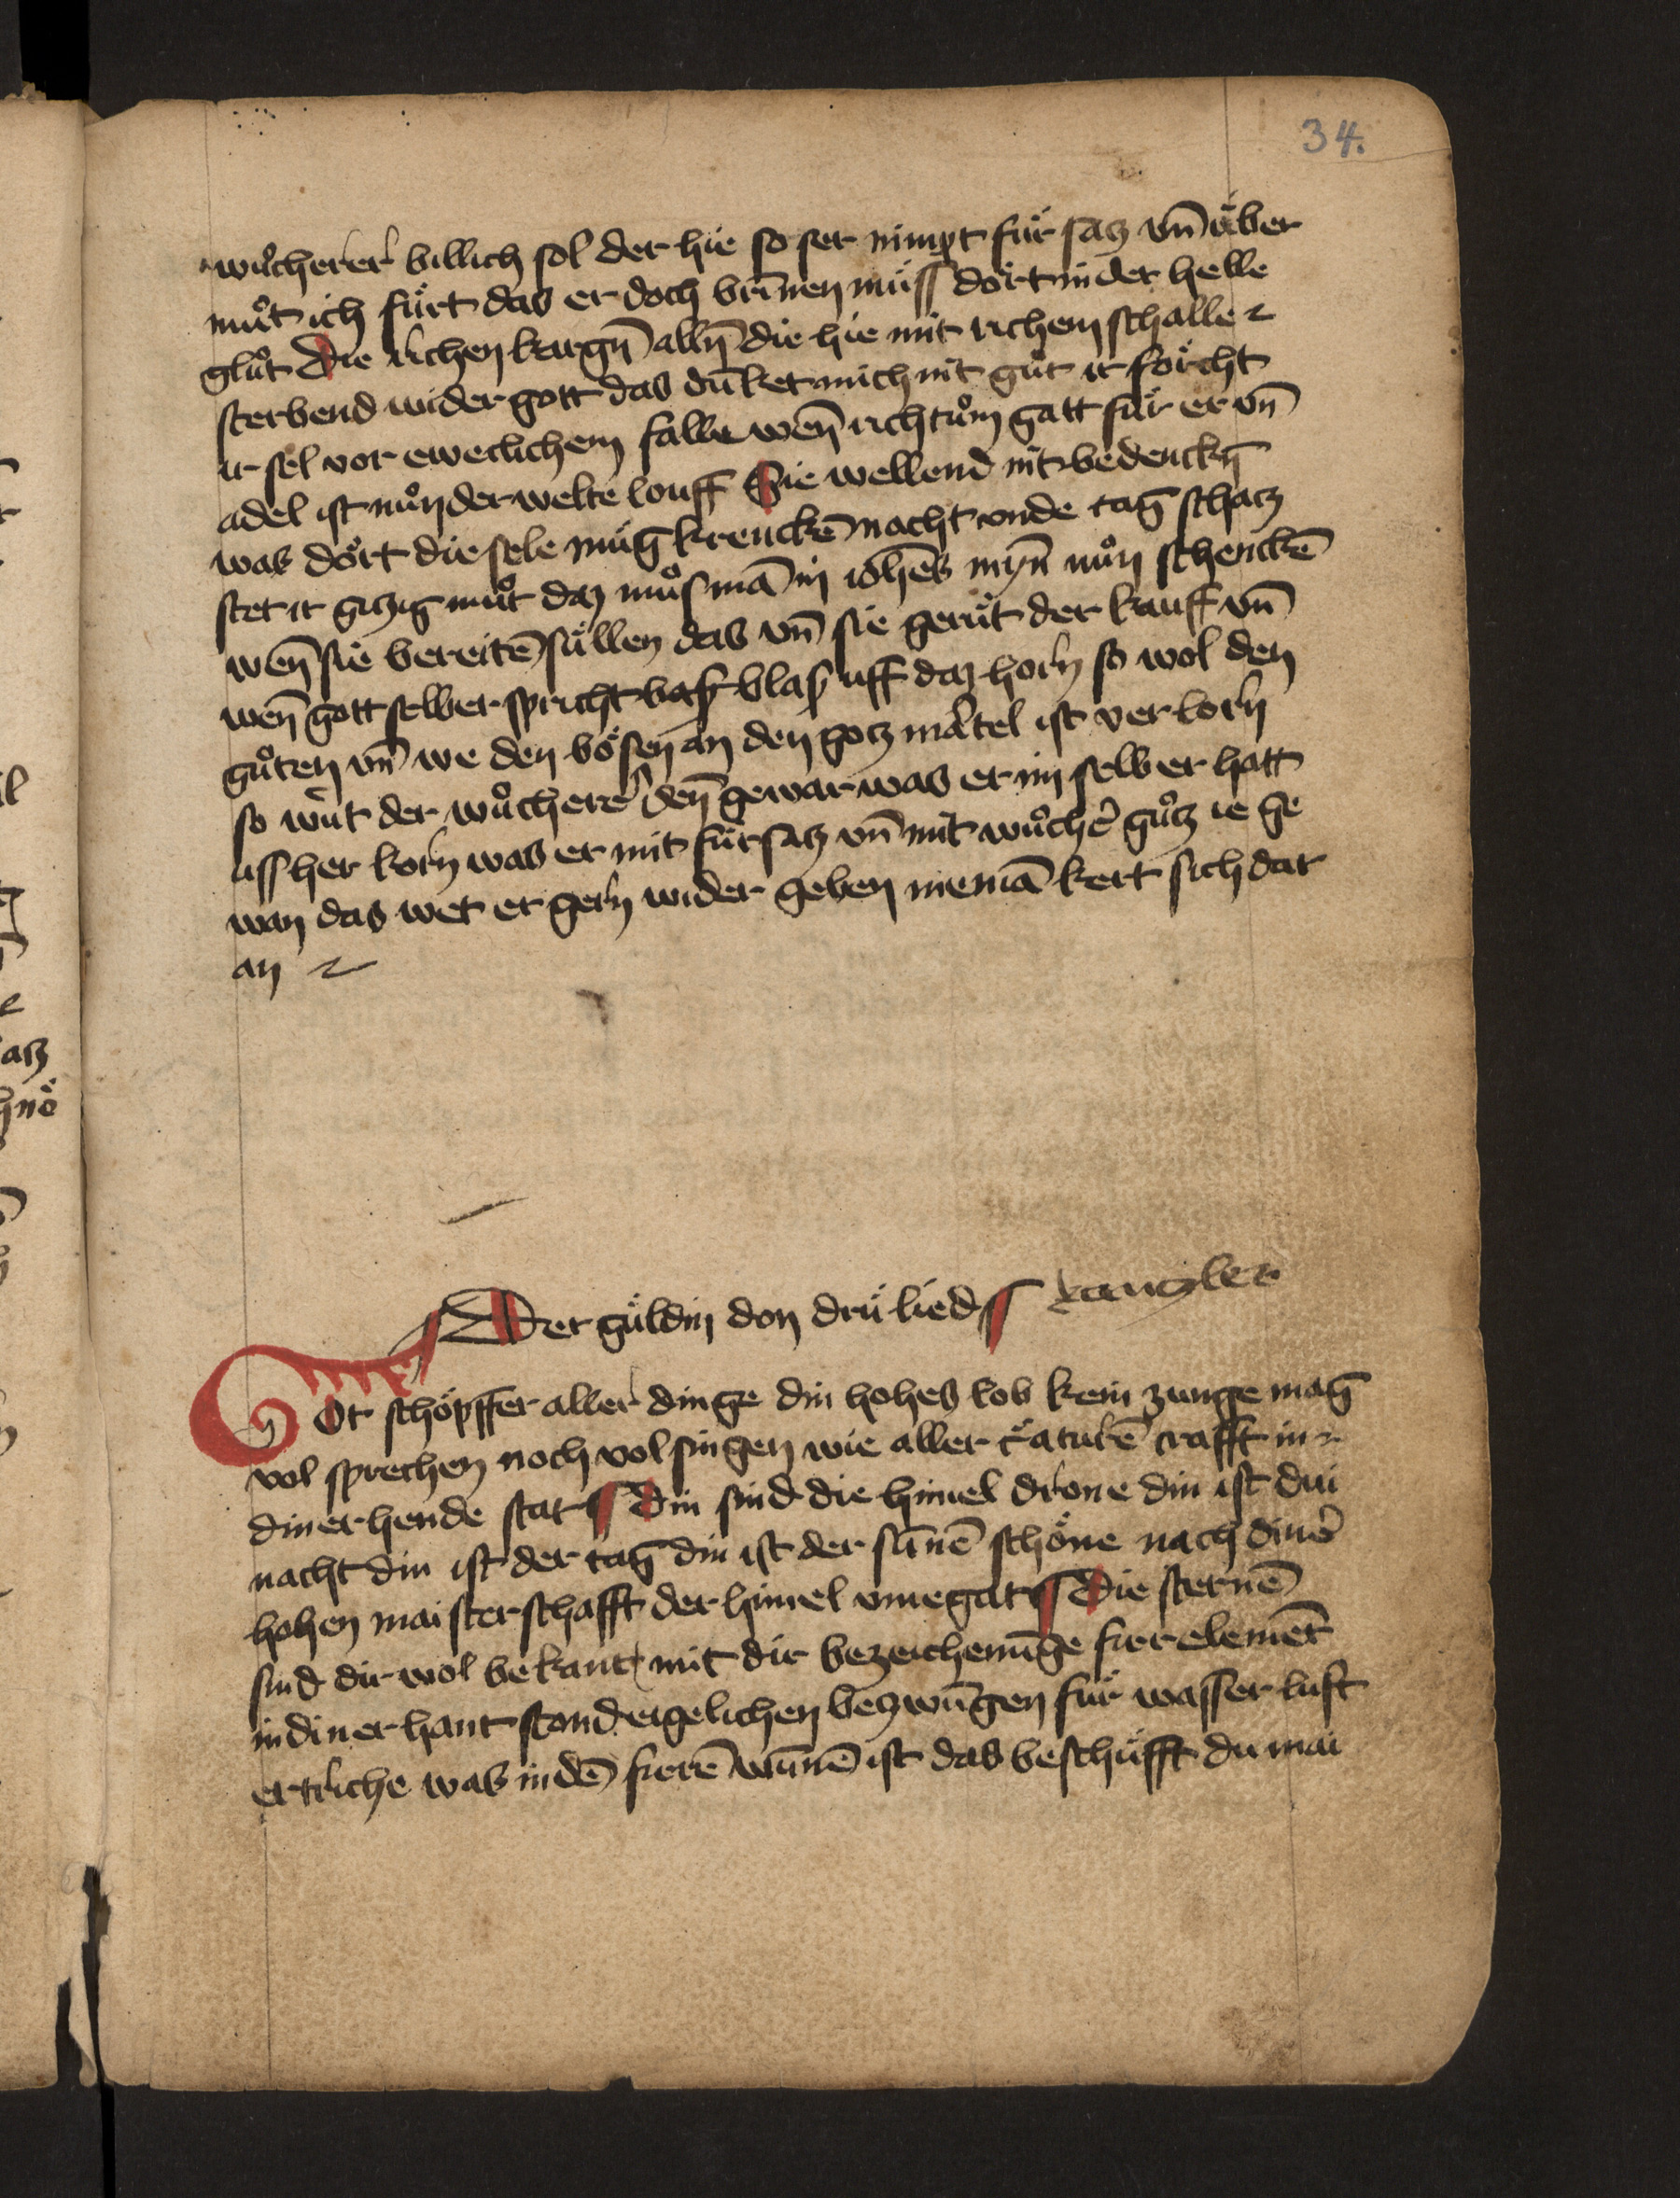 34.
wůcherer billich sol der hie so ser nimpt fúr satz vn̄ v́ber
můt ich fúrt das er doch brīnen můss dört in der helle
glůt Die richen kargn̄ alln̄ die hie mit richem schalle
sterbend wider gott das dūket mich nit gůt ir förcht
ir sel vor eweclichem falle wen̄ richtům gatt fúr er vn̄
adel ist nůn der welte louff Sie wellend nit bedenckn̄
was dört die sele múg krenckē nacht vnde tag schatz
stet ir gitzig můt daz můs mā in iohēs myn̄ nůn schenckē
wen̄ sie bereitē súllen das vn̄ sie gerút der kauff vn̄
wen̄ gott selber spricht blas uff daz horn so wol den
gůten vn̄ we den bösen an den gotz martel ist verlorn
so wirt der wůcherer den̄ gewar was er im selber hatt
uss her korn was er mit fúrsatz vn̄ mit wůcher gůtz ie ge
wan das wet er gern wider geben niemā kert sich dar
an
Der gúldin don drú lied kanczler
Got schöpffer aller dinge din hohes lob kein zunge mag
vol sprechen noch vol singen wie aller creaturē crafft in
diner hende stat Din sind die himel drone din ist dui
nacht din ist der tag din ist der sūnē schöne nach diner
hohen maisterschafft der himel vmegat Die sternē
sind dir wol bekant mit dir bezeichenūge fier elemēt
in diner hant stond eigelichen betzwūgen fúr wasser luft
ertriche was in dē fierē wūnē ist das beschúfft du mai